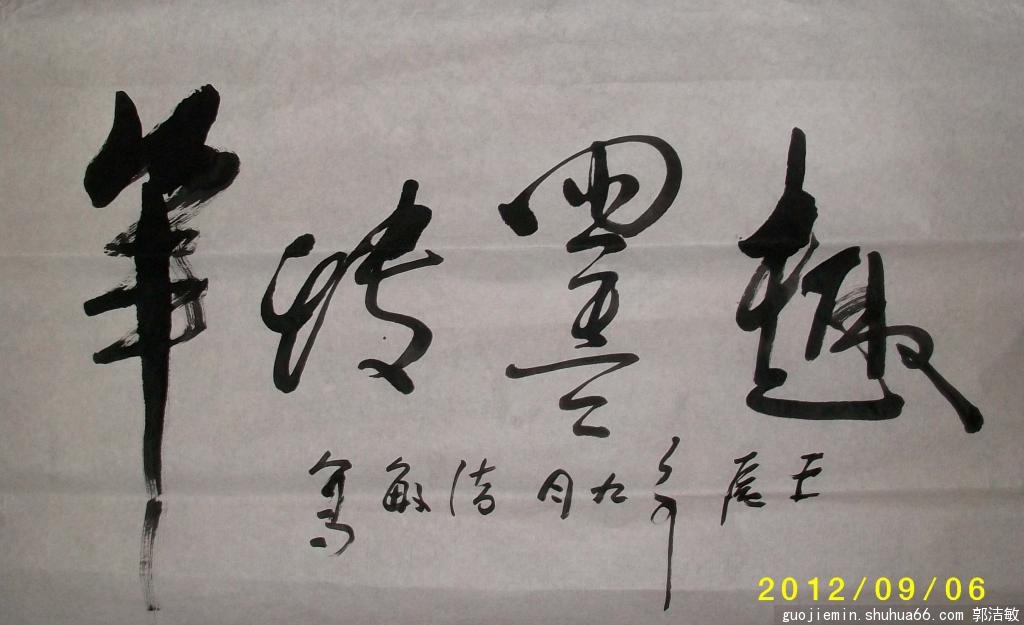 筆墨趣
壬辰年九月洁敏写
2012/09/06
guojiemin.shuhua66.com 郭洁敏